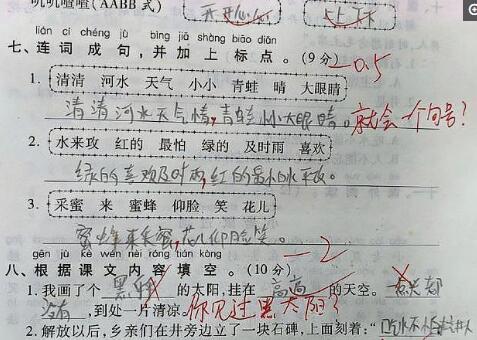 叽叽喳喳(AABB式)
lián cí chéng jù bìng jiā shàng biāo diǎn
七、连词成句,并加上标点。(9分) -0.5
1. 清清 河水 天气 小小 青蛙 晴 大眼睛
清清河水天气晴,青蛙小小大眼睛。就会一个句号?
2. 水来攻 红的 最怕 绿的 及时雨 喜欢
绿的喜欢及时雨,红的最怕水来攻。
3. 采蜜 来 蜜蜂 仰脸 笑 花儿
蜜蜂来采蜜,花儿仰脸笑。
gēn jù kè wén nèi róng tián kòng -2
八、根据课文内容填空。(10分)
1. 我画了个 的太阳,挂在 高高 的天空。
没有 ,到处一片清凉。你见过黑太阳?
2. 解放以后,乡亲们在井旁边立了一块石碑,上面刻着:“吃水不忘挖井人